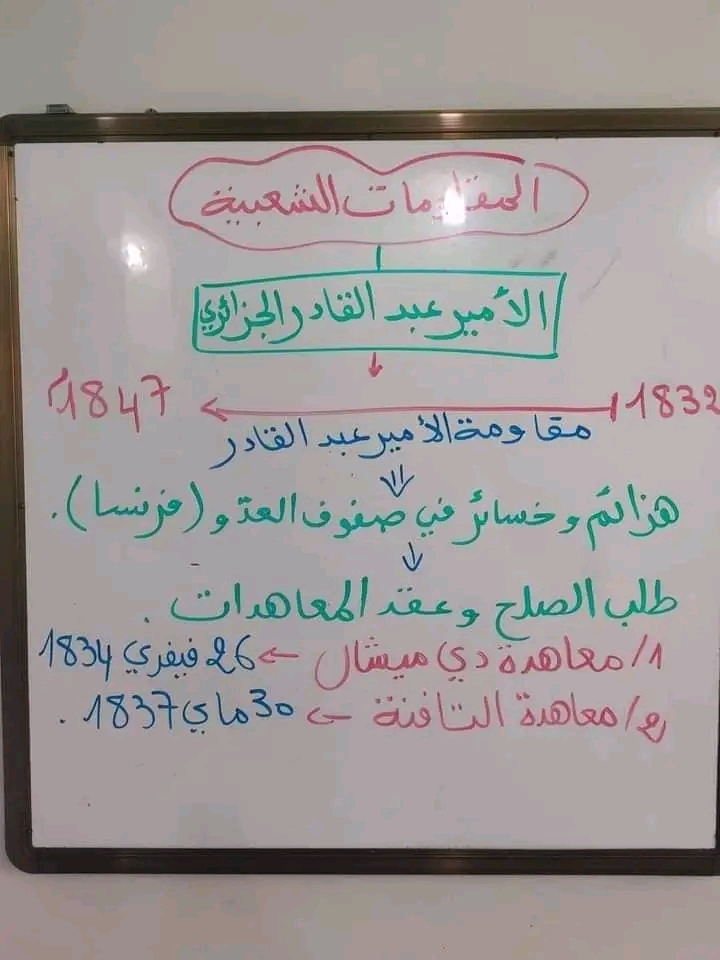 المقاومات الشعبية
الأمير عبد القادر الجزائري
1832 1847م
مقاومة الأمير عبد القادر
هزائم و خسائر في صفوف العدو (فرنسا).
طلب الصلح و عقد المعاهدات.
1/ معاهدة دي ميشال ← 26 فيفري 1834
2/ معاهدة التافنة ← 30 ماي 1837.